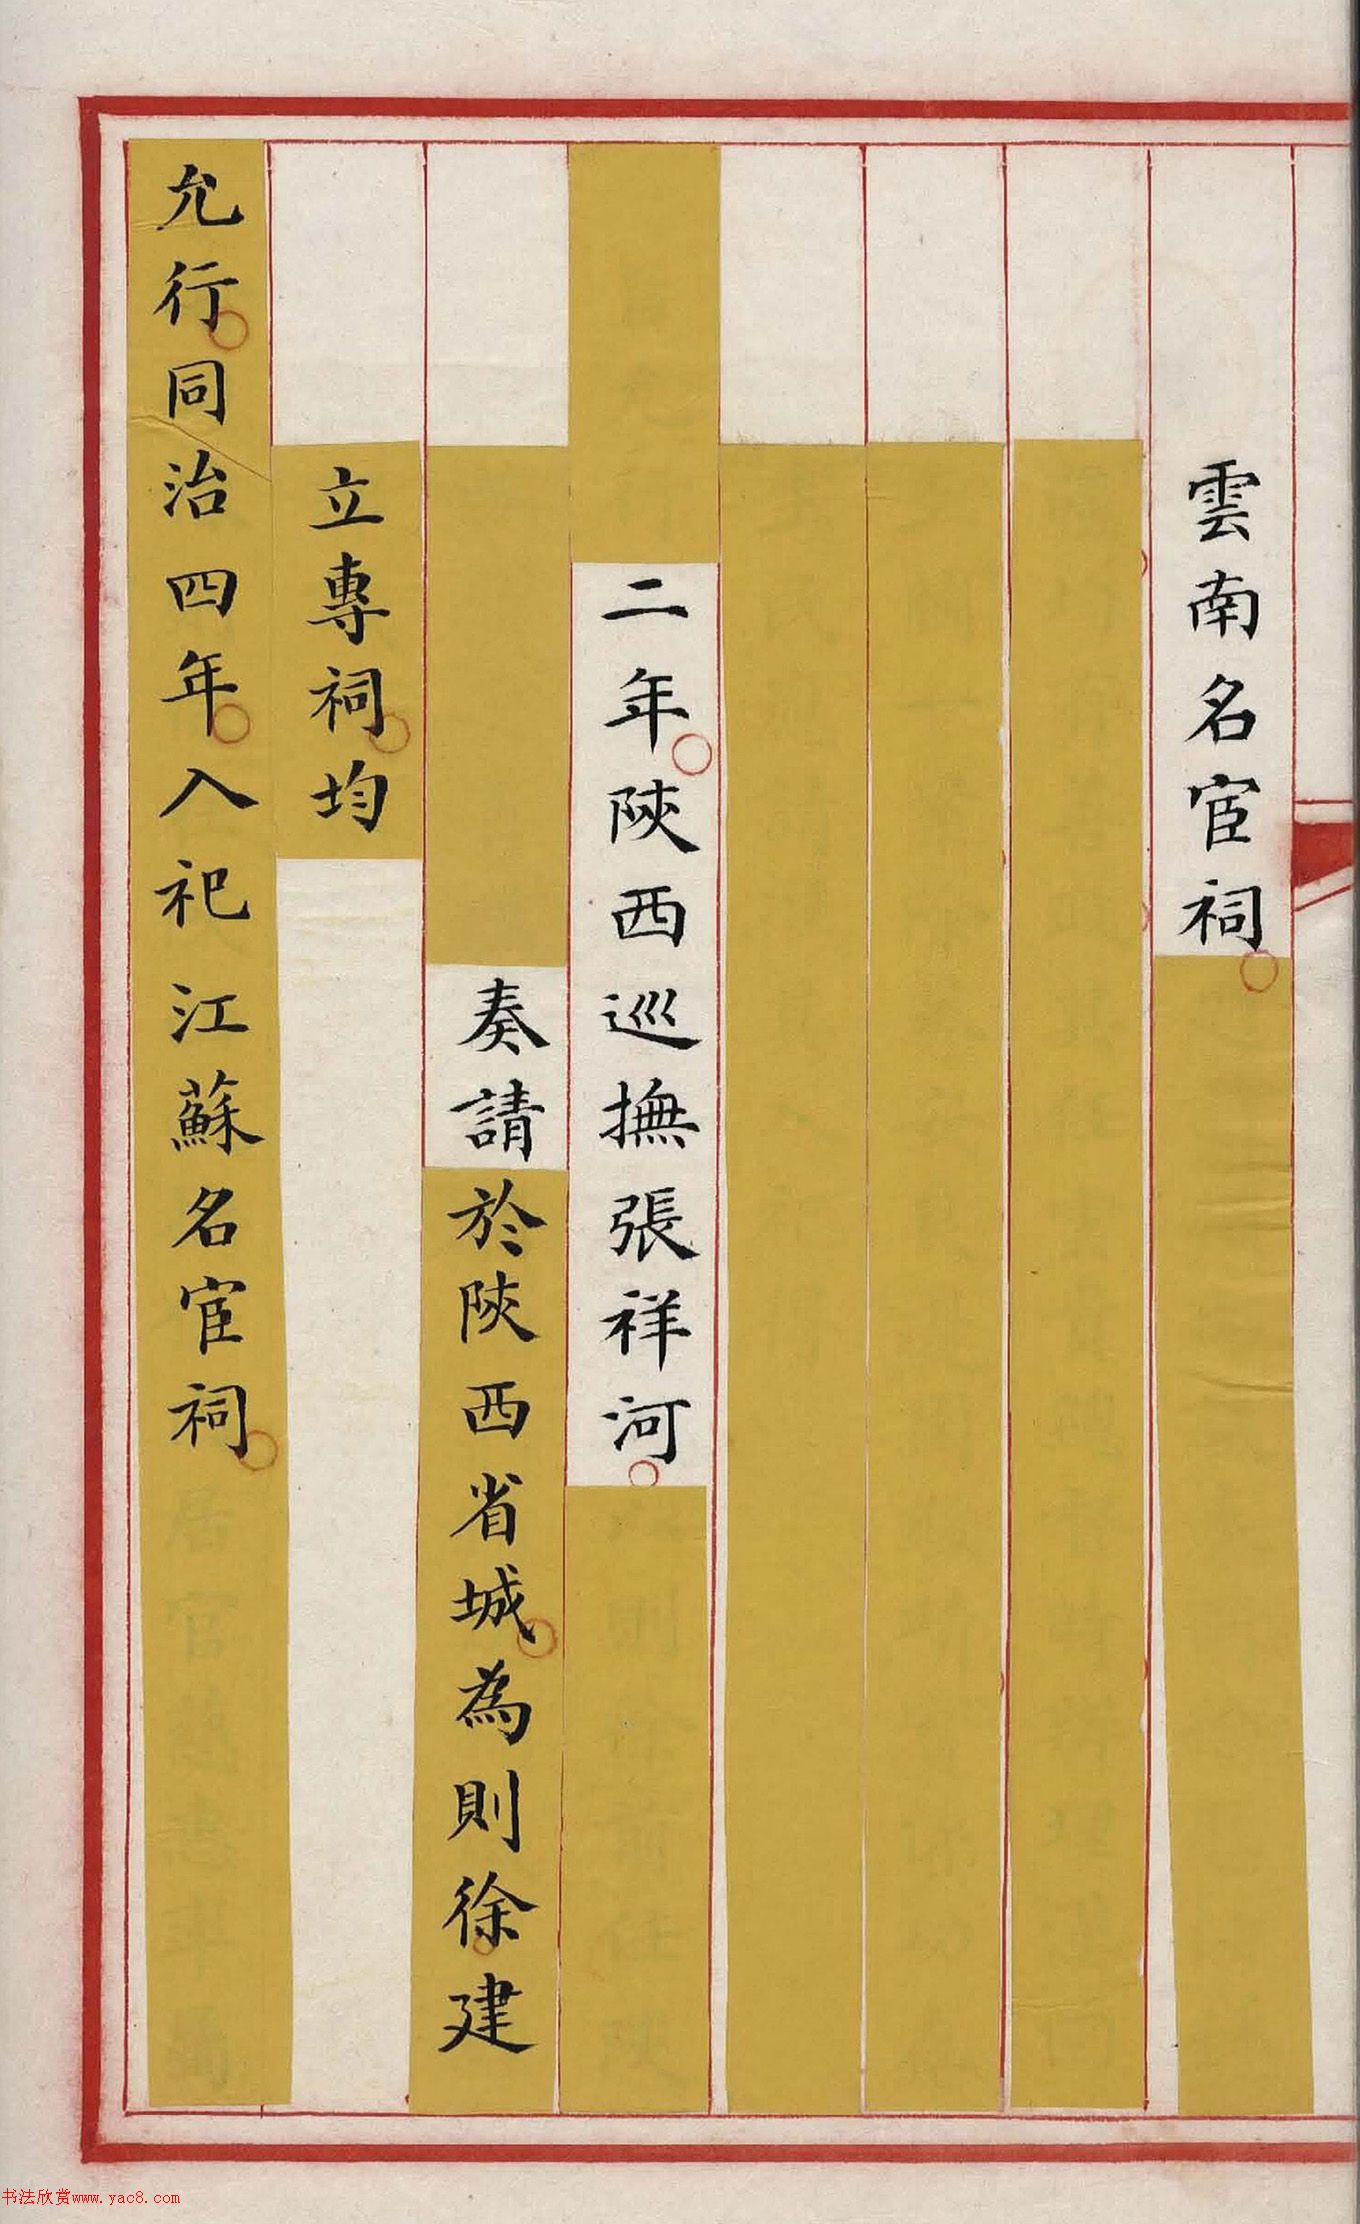 雲南名宦祠
二年陝西巡撫張祥河
奏請於陝西省城為則徐建
立專祠均
允行同治四年入祀江蘇名宦祠
书法欣赏www.yac8.com